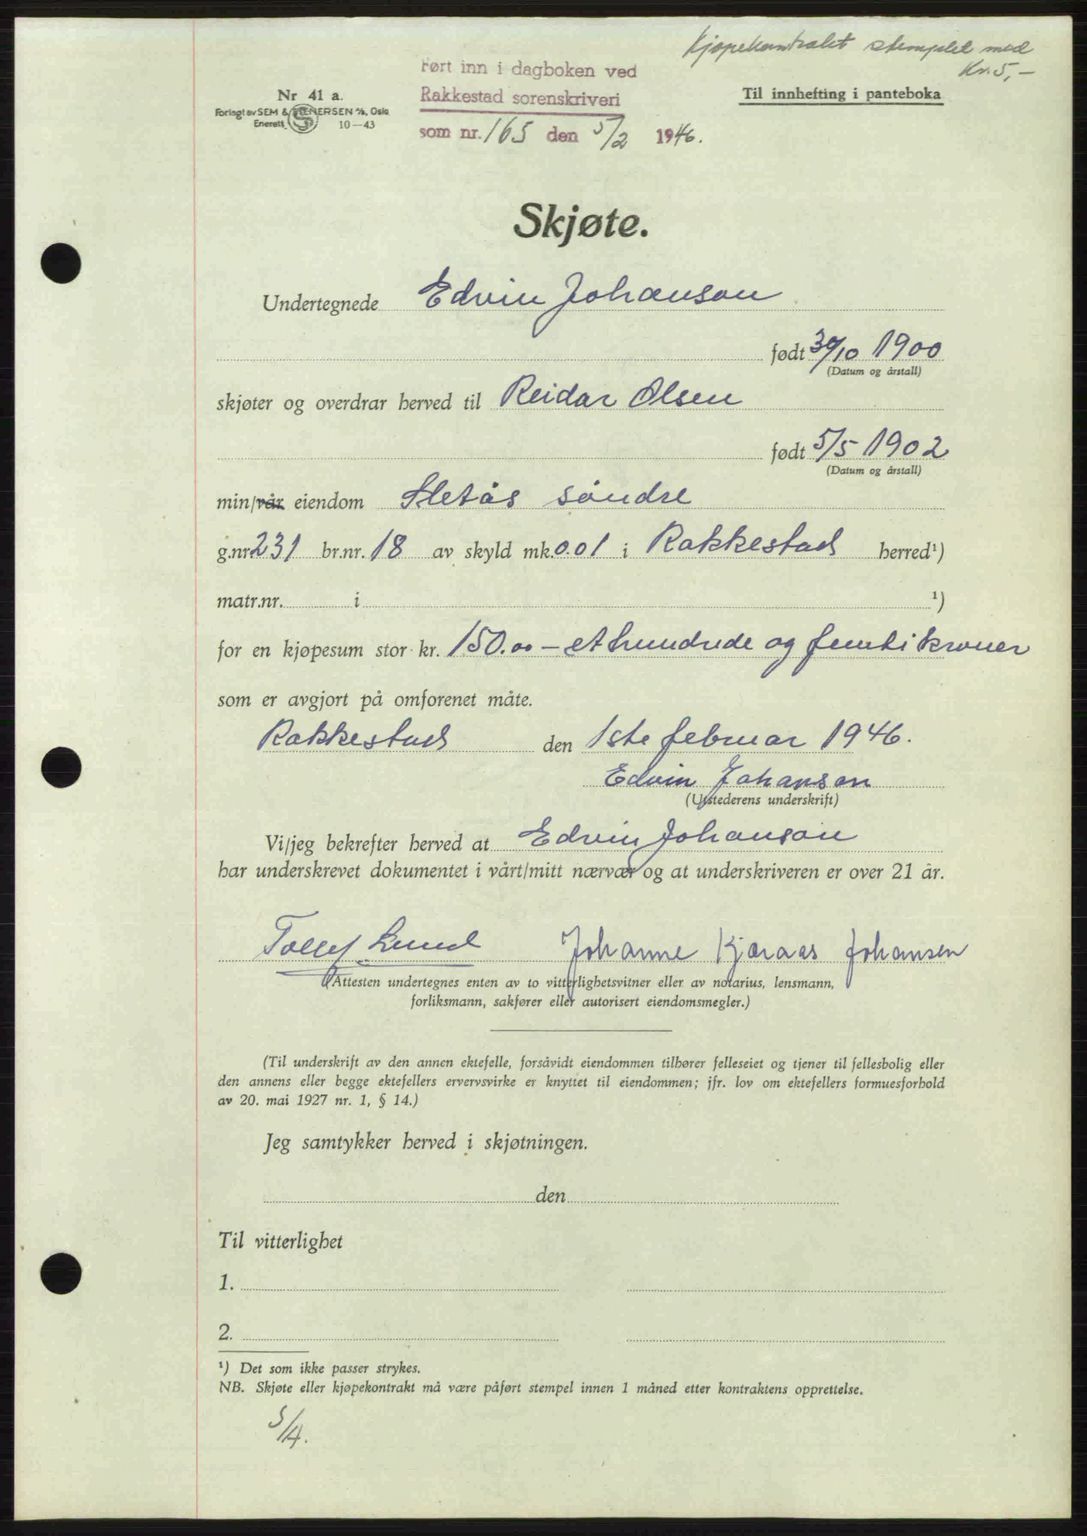 Kjøpekontrakt stemplet med
Kr. 5,-
Ført inn i dagboken ved
Rakkestad sorenskriveri
som nr. 165 den 5/2 1946.
Nr 41 a.
Forlagt av SEM & STENERSEN A/S, Oslo
Enerett 10-43
Til innhefting i panteboka
Skjøte.
Undertegnede Edvin Johanson
født 30/10 1900
(Datum og årstall)
skjøter og overdrar herved til Reidar Olsen
født 5/5 1902
(Datum og årstall)
min/vår eiendom Sletås söndre
g.nr. 231 br.nr. 18 av skyld mk. 0.01 i Rakkestad herred¹)
matr.nr. i ¹)
for en kjøpesum stor kr. 150.00 — ethundrede og femti kroner
som er avgjort på omforenet måte.
Rakkestad den 1ste februar 1946.
Edvin Johanson
(Utstederens underskrift)
Vi/jeg bekrefter herved at Edvin Johanson
har underskrevet dokumentet i vårt/mitt nærvær og at underskriveren er over 21 år.
Lund Johanne Kjæraas Johansen
(Attesten undertegnes enten av to vitterlighetsvitner eller av notarius, lensmann,
forliksmann, sakfører eller autorisert eiendomsmegler.)
(Til underskrift av den annen ektefelle, forsåvidt eiendommen tilhører felleseiet og tjener til fellesbolig eller
den annens eller begge ektefellers ervervsvirke er knyttet til eiendommen; jfr. lov om ektefellers formuesforhold
av 20. mai 1927 nr. 1, § 14.)
Jeg samtykker herved i skjøtningen.
den
Til vitterlighet
1.
2.
¹) Det som ikke passer strykes.
NB. Skjøte eller kjøpekontrakt må være påført stempel innen 1 måned etter kontraktens opprettelse.